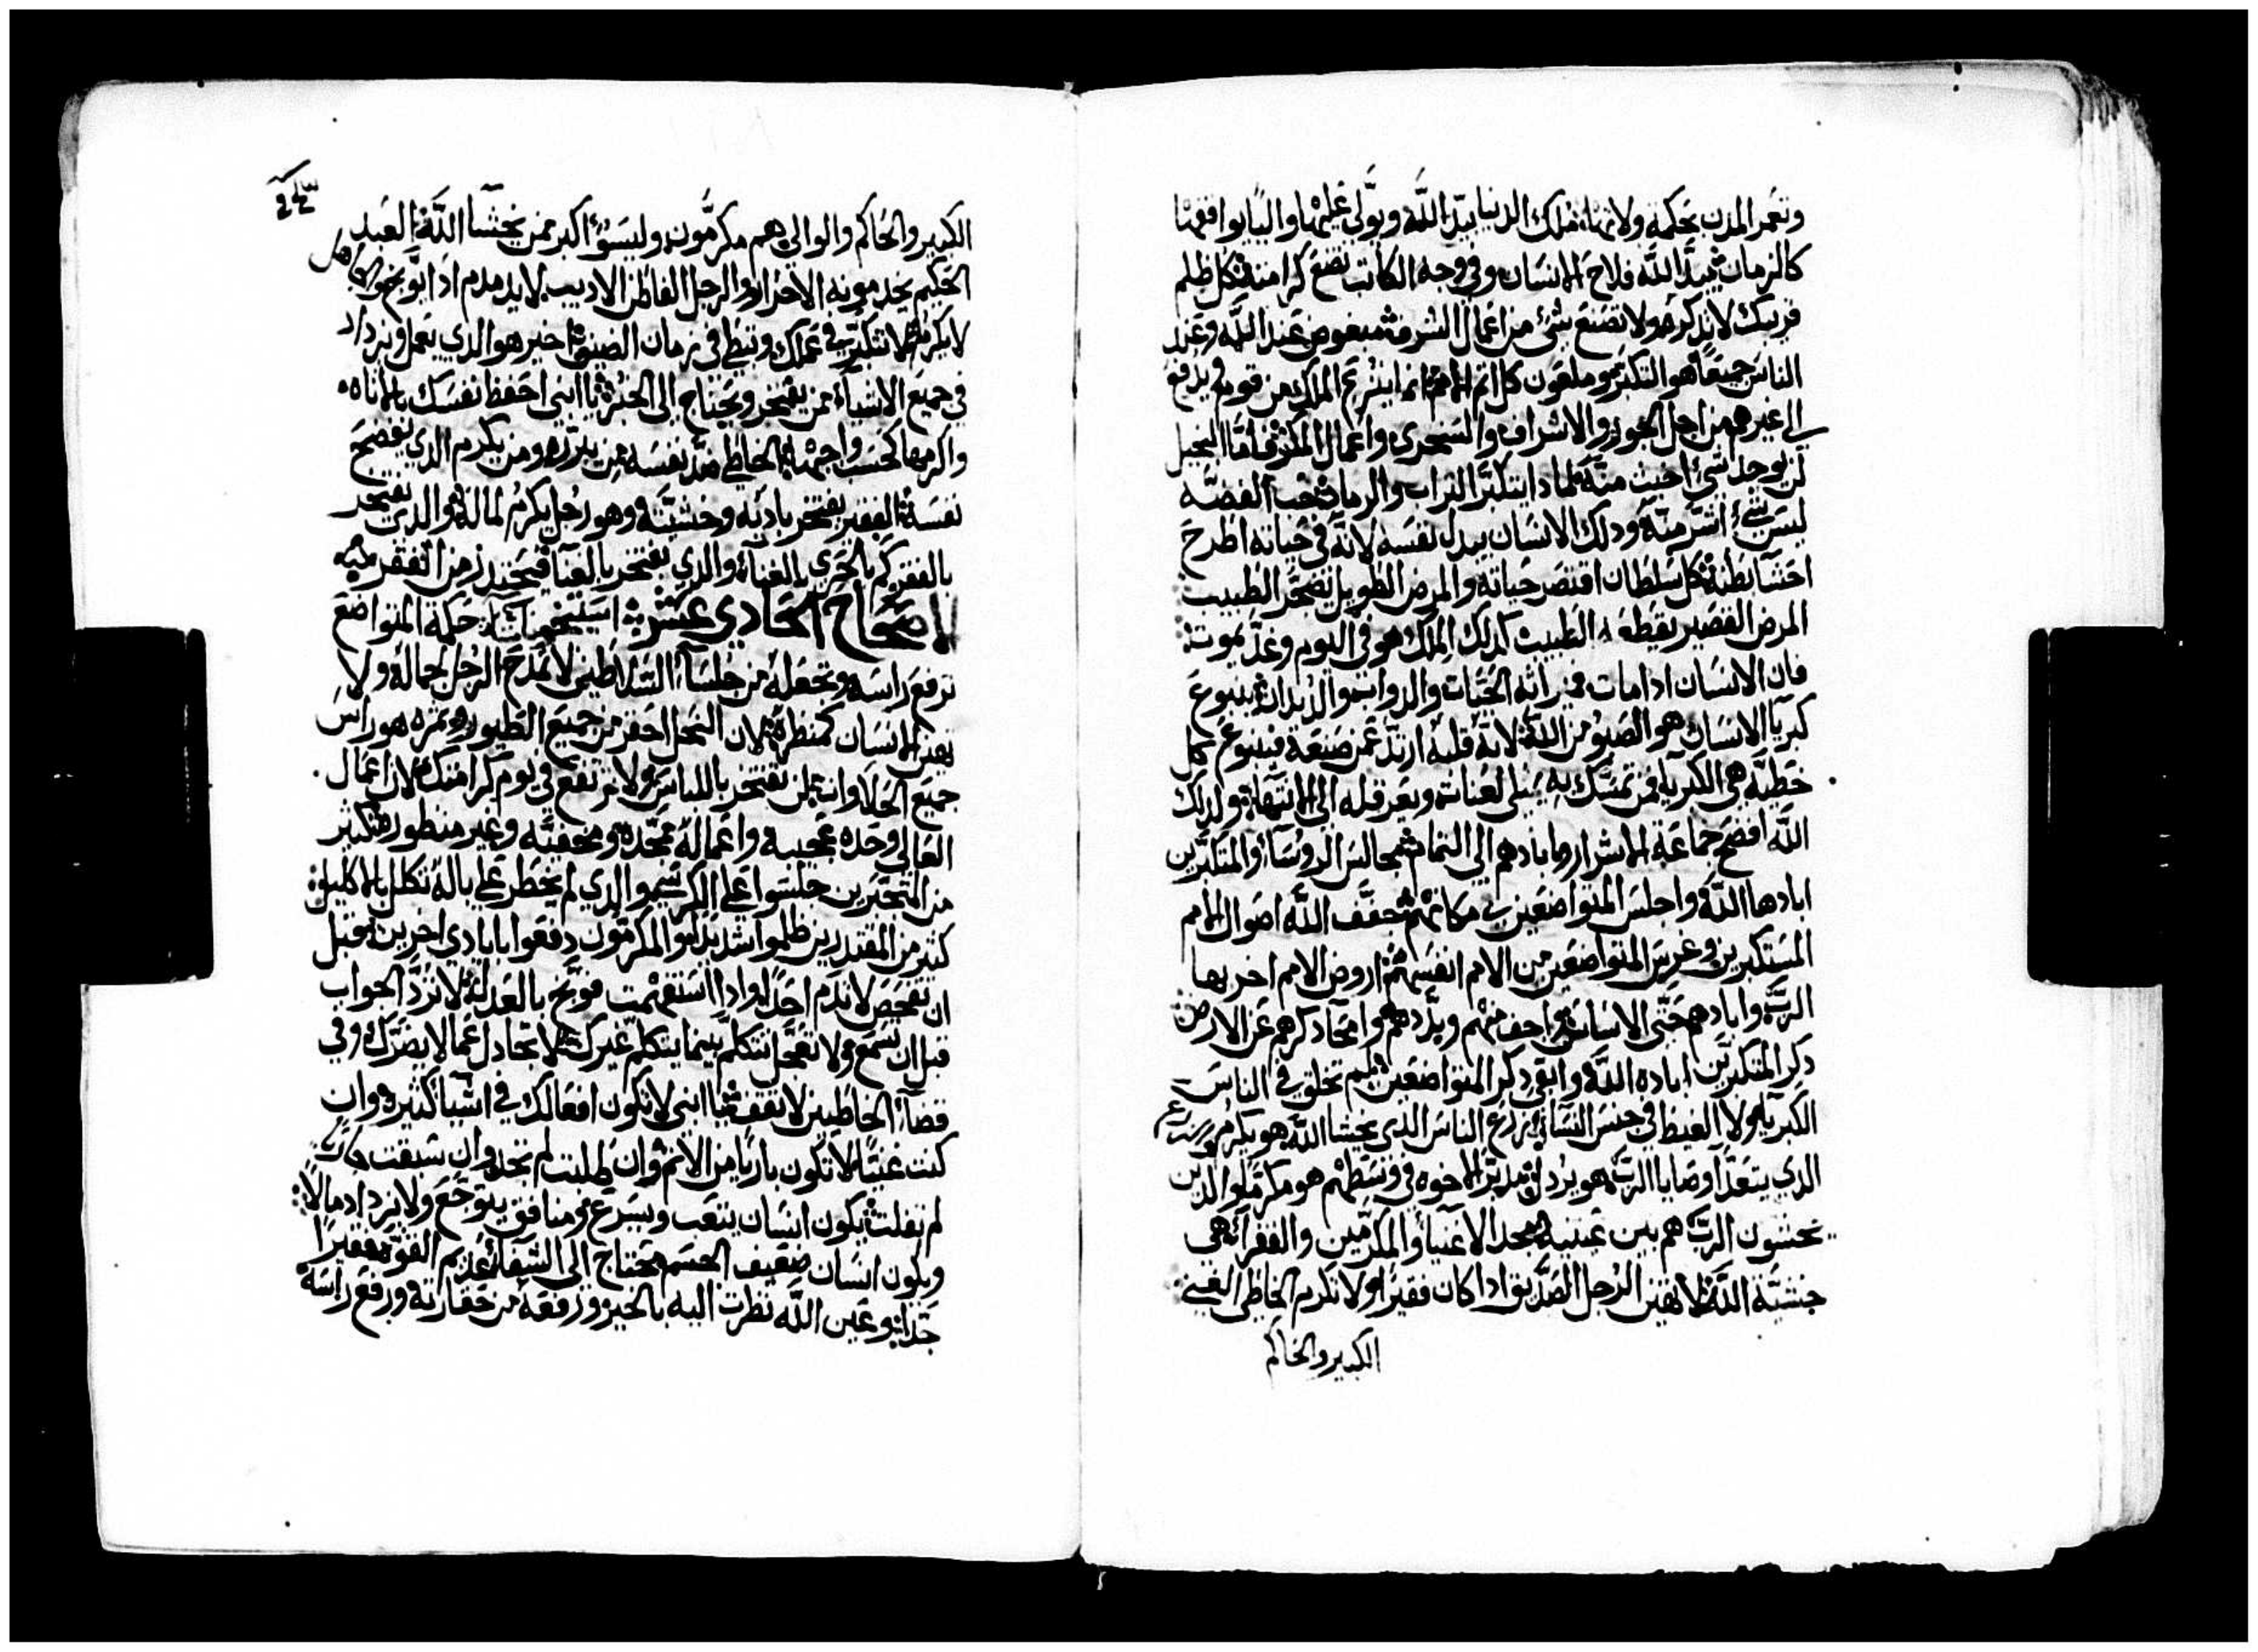 وتعمر المدن بحكمة ولاتها ملك الدنيا بيد الله ويولي عليها واليًا يوافقها
كالزمان بيد الله فلاح الانسان وفي وجه الكاتب تضع كرامته كل ظلم
قريبك لا تذكره ولا تصنع شئ من اعمال الشر مبغوض عند الله وعند
الناس جميعًا هو التكبر وملعون كل اثم الامم ينزع الملك من قوم ويدفع
الى غيرهم من اجل الجور والاشراف والسخرى واعمال المكر فاما البخيل
لن يوجد شئ اخبث منه لماذا يتكبر التراب والرماد حب الفضه
ليس شئ اشر منه وذلك الانسان يبدل نفسه لانه في حياته اطرح
احشا بطنه كل سلطان اقتصر حياته والمرض الطويل يضجر الطبيب
المرض القصير يقطعه الطبيب كذلك الملك هو في اليوم وغدّ يموت
فان الانسان اذا مات ميراثه الحيات والدواب والديدان ينبوع
كبريا الانسان هو من الله لانه قلبه ارتدّ عمن صنعه فينبوع كل
خطيه هي الكبريا فمن تمسك به يمتلى لعنات وتعرقله الى الانتهاء ولذلك
الله افضح جماعة الاشرار وابادهم الى التمام مجالس الروساء والمتكبرين
ابادها الله واجلس المتواضعين في مكانهم جفف الله اصوال الامم
المستكبرين وغرس المتواضعين من الامم انفسهم اروض الامم اخربها
الرب وابادهم حتى الاساس منهم وبددهم وامحا ذكرهم عن الارض
ذكر المتكبرين اباده الله وابقى ذكر المتواضعين لم تخلق في الناس
الكبريا ولا الغيظ في جنس النسا زرع الناس الذي يخشا الله هو يكرم
الذي يتعدّا وصايا الرب هو يرذل مدبّر الاخوه في وسطهم هو مكرم والذين
يخشون الرب هم بين عينيه مجد الاغنيا والمكرمين والفقراء هي
خشية الله لا تهين الرجل الصدّيق اذا كان فقيرًا ولا تكرم الخاطي الغني
الكبير والحاكم
الكبير والحاكم والوالي هم مكرّمون وليس اكبر ممن يخشا الله العبد
الحكيم يخدمونه الاحرار والرجل الفاطن الاديب لا يدمدم اذا توبخ والجاهل
لا يكرم لا تتكبر في عملك وتبطى في زمان الضيق اخير هو الذي يعمل ويزداد
في جميع الاشياء ممن يفتخر ويحتاج الى الخبز يا ابني احفظ نفسك بالاناه
واكرمها كحسب واجبها الخاطي ضد نفسه من يبرره ومن يكرم الذي يفضح
نفسه الفقير يفتخر بادبه وخشيته وهو رجل يكرم لماله والذى يفتخر
بالفقر كم بالحري بالغناء والذي يفتخر بالغنا
الاصحاح الحادي عشر حكمة المتواضع
ترفع راسه وتجعله من جلساء السلاطين لا تمدح الرجل لجماله ولا
تهين الانسان كمنظره لان النحل احقر من جميع الطيور وثمره هو راس
جميع الحلاوات لن تفتخر باللباس ولا ترتفع في يوم كرامتك لان اعمال
العالي وحده عجيبه واعماله ممجّده ومخفيّه وغير منظوره كثير
من المتجبّرين جلسوا على الكرسي والذي لم يخطر على باله تكلل بالاكليل
كثير من المقتدرين ظلموا شديدًا والمكرمون دفعوا بايادي اخرين قبل
ان تفحص لا تذم احدًا واذا استفهمت فوبّخ بالعدل لا تردّ الجواب
قبل ان تسمع ولا تتكلم بينما يتكلم غيرك لا تجادل عمّا لا يضرّك وفي
قضاء الخاطيين لا تقف يا ابني لا تكون افعالك في اشيا كثيره وان
كنت غنيًا لا تكون باريًا من الاثم وان طلبت لم تجد وان سبقت
لم تفلت يكون انسان يتعب ويسرع ومنافق يتوجّع ولا يزداد مالًا
ويكون انسان ضعيف الجسم محتاج الى الشفاء عديم القوّه فقيرًا
جدًا وعين الله نظرت اليه بالخير ورفعه من حقارته ورفع راسه